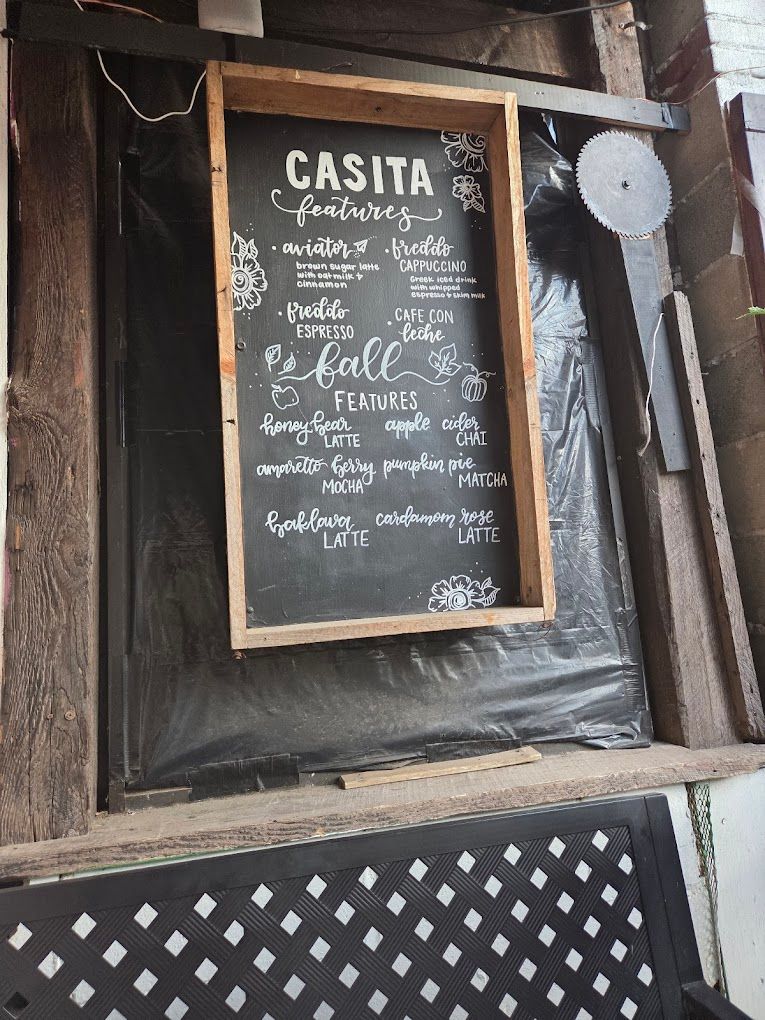 CASITA
features
• aviator
brown sugar latte
with oatmilk +
cinnamon
• freddo
CAPPUCCINO
Greek iced drink
with whipped
espresso + skim milk
• freddo
ESPRESSO
• CAFE CON
leche
fall
FEATURES
honey bear
LATTE
apple cider
CHAI
amaretto berry
MOCHA
pumpkin pie
MATCHA
baklava
LATTE
cardamom rose
LATTE